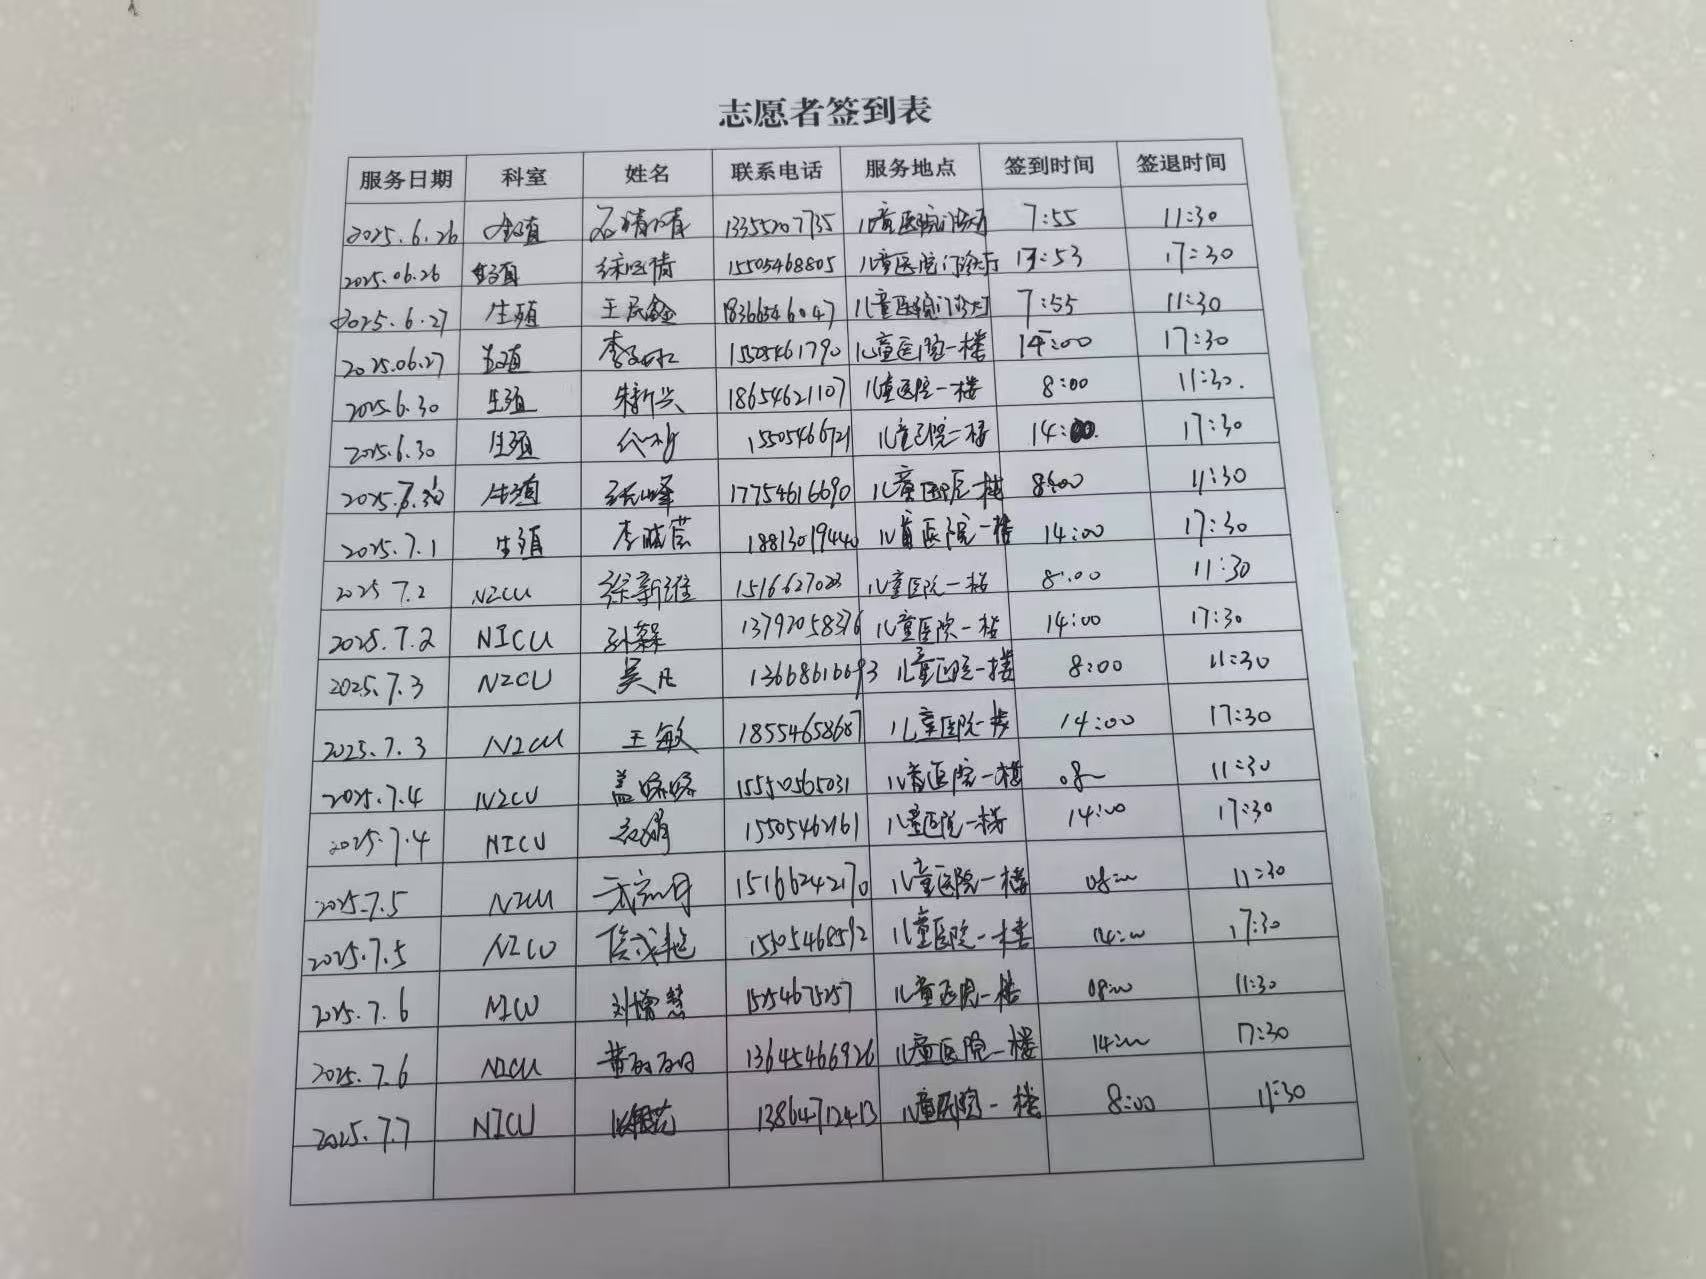 志愿者签到表
服务日期 科室 姓名 联系电话 服务地点 签到时间 签退时间
2025.6.26 生殖 石晴晴 13355207735 儿童医院门诊大厅 7:55 11:30
2025.06.26 生殖 15505468805 儿童医院门诊大厅 13:53 17:30
2025.6.27 生殖 王民鑫 18366546047 儿童医院门诊大厅 7:55 11:30
2025.06.27 生殖 15505461790 儿童医院一楼 14:00 17:30
2025.6.30 生殖 朱新兴 18654621107 儿童医院一楼 8:00 11:30.
2025.6.30 生殖 15505466721 儿童医院一楼 14:00. 17:30
生殖 张峰 17754616690 儿童医院一楼 8:00 11:30
2025.7.1 生殖 李晓莹 18813019440 儿童医院一楼 14:00 17:30
2025 7.2 NICU 徐新维 1516627023 儿童医院一楼 8:00 11:30
2025.7.2 NICU 孙霖 13792058376 儿童医院一楼 14:00 17:30
2025.7.3 NICU 吴凡 13668616693 儿童医院一楼 8:00 11:30
2025.7.3 NICU 王敏 18554658687 儿童医院一楼 14:00 17:30
2025.7.4 NICU 盖婷婷 15550565031 儿童医院一楼 08 11:30
2025.7.4 NICU 15505462161 儿童医院一楼 14:00 17:30
2025.7.5 NICU 15166242170 儿童医院一楼 08:00 11:30
2025.7.5 NICU 15505468592 儿童医院一楼 14:00 17:30
2025.7.6 NICU 刘增慧 15254675257 儿童医院一楼 08:00 11:30
2025.7.6 NICU 13645466926 儿童医院一楼 14:00 17:30
2025.7.7 NICU 13864712413 儿童医院一楼 8:00 11:30